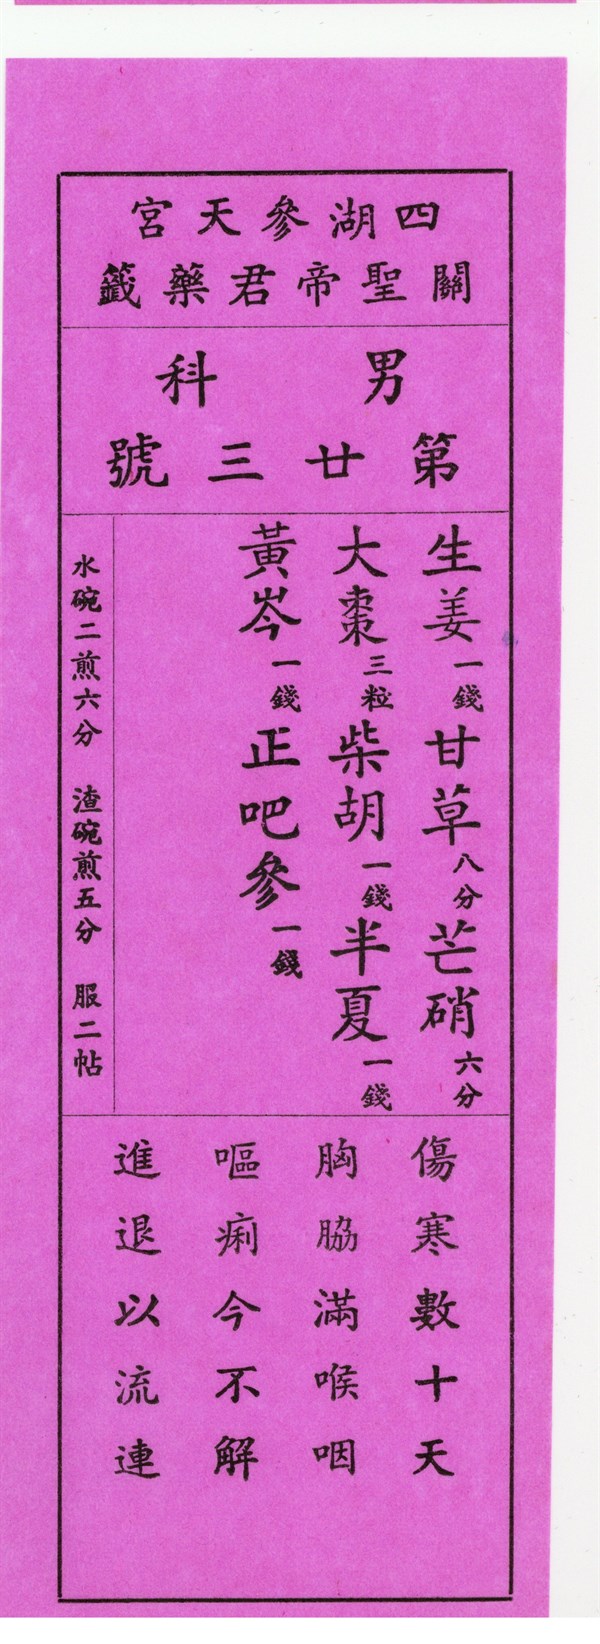 四湖參天宮
關聖帝君藥籤
男科
第廿三號
生姜一錢甘草八分芒硝六分
大棗三粒柴胡一錢半夏一錢
黃岑一錢正吧參一錢
水碗二煎六分 渣碗煎五分 服二帖
傷寒數十天
胸脇滿喉咽
嘔痢今不解
進退以流連